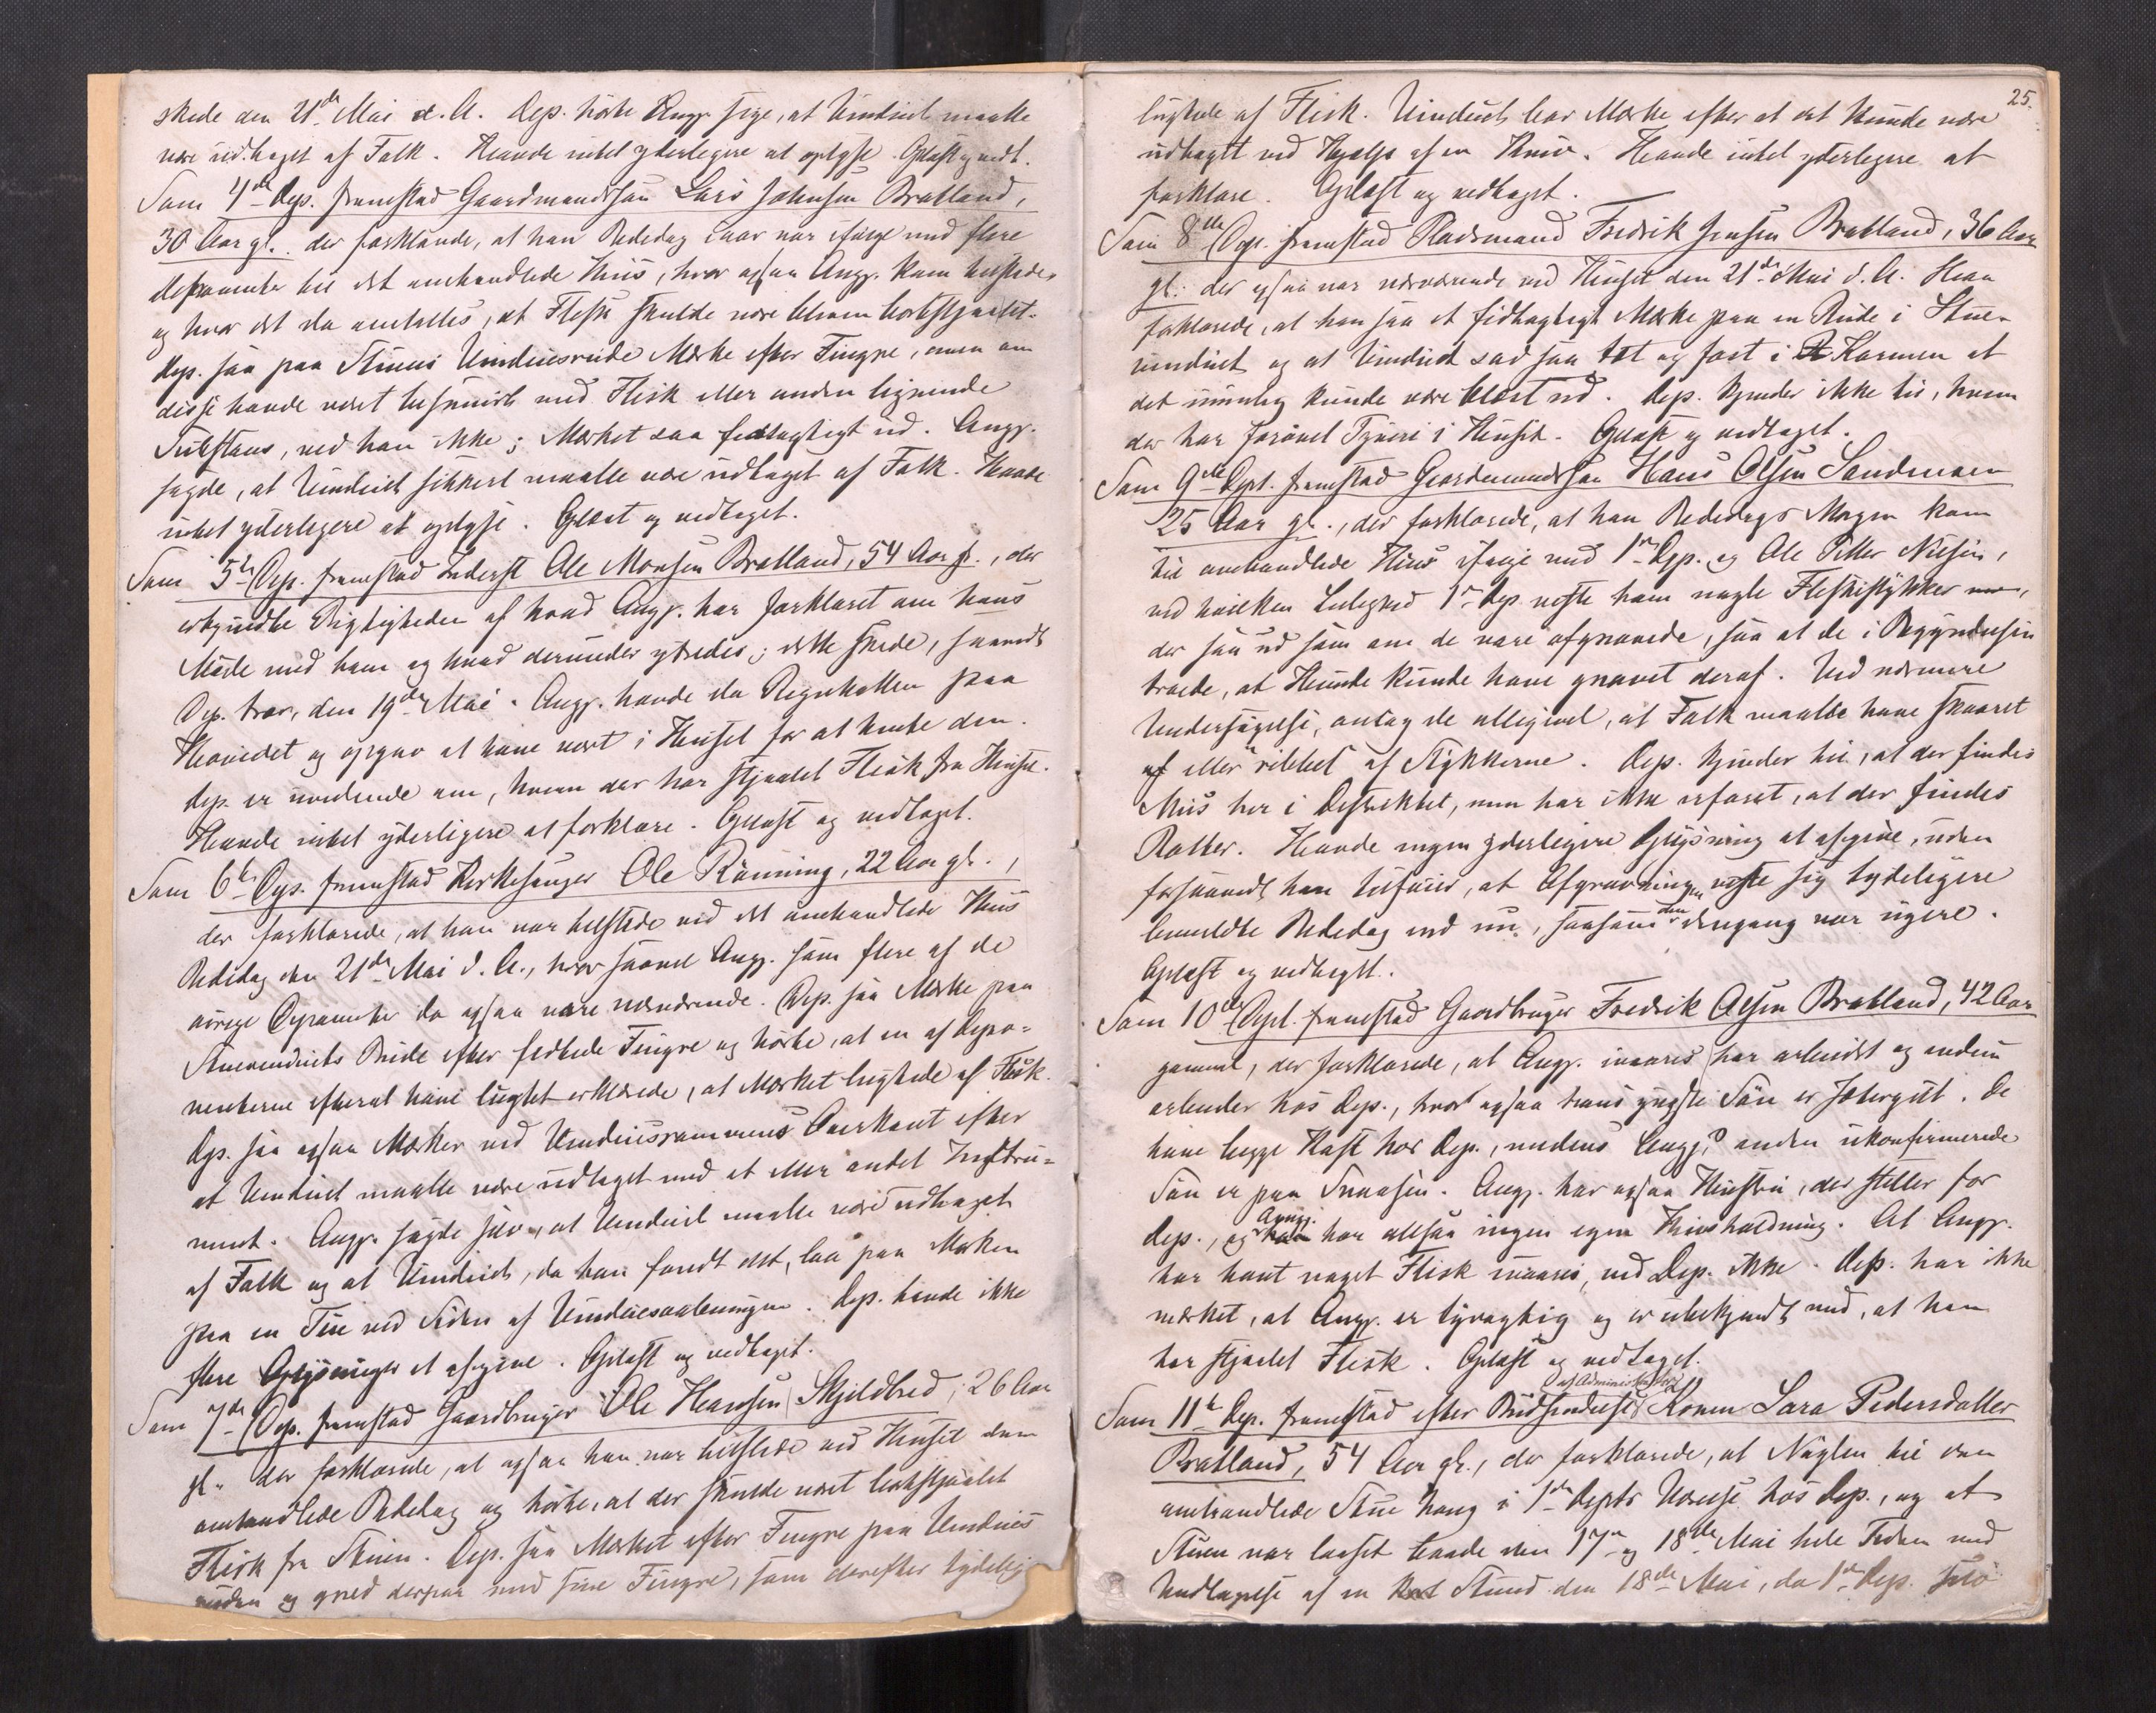 skede den 21de Mai d. A. Dep. hörte Angj. sige, at Vinduet maatte
være udtaget af Folk. Havde intet yderligere at oplyse. Oplæst og vedt.
Som 4de Dep. fremstod Gaardmandssøn Lars Johnsen Bratland,
30 Aar gl. der forklarede, at han Bededag iaar var ifølge med flere
Deponenter til det omhandlede Hus, hvor ogsaa Angj. kom tilstede
og hvor det da omtaltes, at Flesk skulde være bleven bortstjaalet.
Dep. saa paa Stuens Vinduesrude Mærke efter Fingre, men om
disse havde været besmurt med Flesk eller anden lignende
Substans, ved han ikke; Mærket saa fedtagtigt ud. Angj.
sagde, at Vinduet sikkert maatte være udtaget af Folk. Havde
intet yderligere at oplyse. Oplæst og vedtaget.
Som 5te Dep. fremstod Inderst Ole Monsen Bratland, 54 Aar gl., der
erkjendte Rigtigheden af hvad Angj. har forklaret om hans
Møde med ham og hvad derunder ytredes; dette skede, saavidt
Dep. tror, den 19de Mai. Angj. havde da Regnhatten paa
Hovedet og opgav at have været i Huset for at hente den.
Dep. er uvidende om, hvem der har stjaalet Flesk fra Huset.
Havde intet yderligere at forklare. Oplæst og vedtaget.
Som 6te Dep. fremstod Kirkesanger Ole Rönning, 22 Aar gl.,
der forklarede, at han var tilstede ved det omhandlede Hus
Bededag den 21de Mai d. A., hvor saavel Angj. som flere af de
øvrige Deponenter da ogsaa vare nærværende. Dep. saa Mærke paa
Stuevinduets Rude efter fedtede Fingre og hörte, at en af Depo-
nenterne efterat have lugtet erklærede, at Mærket lugtede af Flesk.
Dep. saa ogsaa Mærker ved Vinduesrammens Overkant efter
at Vinduet maatte være udtaget med et eller andet Instru-
ment. Angj. sagde selv, at Vinduet maatte være udtaget
af Folk og at Vinduet, da han fandt det, laa paa Marken
paa en Tue ved Siden af Vinduesaabningen. Dep. havde ikke
flere Oplysninger at afgive. Oplæst og vedtaget.
Som 7de Dep. fremstod Gaardbruger Ole Hansen Skjeldbred, 26 Aar
gl. der forklarede, at ogsaa han var tilstede ved Huset den
omhandlede Bededag og hörte, at der skulde været bortstjaalet
Flesk fra Stuen. Dep. saa Mærket efter Fingre paa Vindues
ruden og gned derpaa med sine Fingre, som derefter tydelig
25.
lugtede af Flesk. Vinduet bar Mærke efter at det kunde være
udtaget ved Hjælp af en Kniv. Havde intet yderligere at
forklare. Oplæst og vedtaget.
Som 8de Dep. fremstod Pladsmand Fredrik Jensen Bratland, 36 Aar
gl. der ogsaa var nærværende ved Huset den 21de Mai d. A. Han
forklarede, at han saa et fedtagtigt Mærke paa en Rude i Stue-
vinduet og at Vinduet sad saa tæt og fast i Karmen at
det umulig kunde være blæst ud. Dep. kjender ikke til, hvem
der har forövet Tyveri i Huset. Oplæst og vedtaget.
Som 9de Dept. fremstod Gaardmandssøn Hans Olsen Sandmoen
25 Aar gl., der forklarede, at han Bededags Morgen kom
til omhandlede Hus ifølge med 1ste Dep. og Ole Petter Nilsen,
ved hvilken Leilighed 1ste Dep. viste ham nogle Fleskestykker
der saa ud som om de vare afgnavede, saa at de i Begyndelsen
troede, at Hunde kunde have gnavet deraf. Ved nærmere
Undersøgelse, antog de alligevel, at Folk maatte have skaaret
af eller "ribbet" af Stykkerne. Dep. kjender til, at der findes
Mus her i Distriktet, men har ikke erfaret, at der findes
Rotter. Havde ingen yderligere Oplysning at afgive, uden
forsaavidt han tilføier, at Afgnavningen viste sig tydeligere
bemeldte Bededag end nu, saasom den dengang var nyere.
Oplæst og vedtaget.
Som 10de Dept. fremstod Gaardbruger Fredrik Olsen Bratland, 42 Aar
gammel, der forklarede, at Angj. invaares har arbeidet og endnu
arbeider hos Dep., hvor ogsaa hans yngste Søn er Jætergut. De
have begge Kost hos Dep., medens Angj.s anden ukonfirmerede
Søn er paa Snaasen. Angj. har ogsaa Hustru, der steller for
Dep., og Angj. har altsaa ingen egen Husholdning. At Angj.
har havt noget Flesk invaares, ved Dep. ikke. Dep. har ikke
mærket, at Angj. er tyvagtig og er ubekjendt med, at han
har stjaalet Flesk. Oplæst og vedtaget.
Som 11te Dep. fremstod efter Budsendelse af Administrator Konen Sara Pedersdatter
Bratland, 54 Aar gl., der forklarede, at Nøglen til den
omhandlede Stue hang i 1ste Depts Værelse hos Dep., og at
Stuen var laaset baade den 17de og 18de Mai hele Tiden med
Undtagelse af en kort Stund den 18de Mai, da 1ste Dep. selv